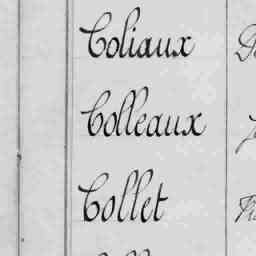 Coliaux
Colleaux
Collet